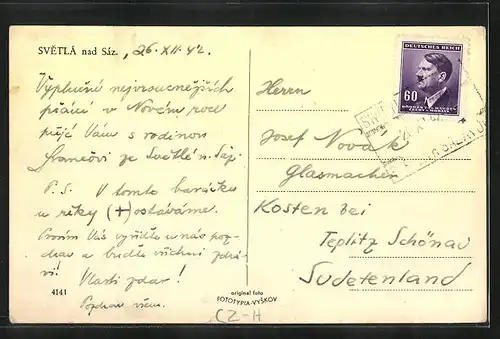 SVĚTLÁ nad Sáz. , 26. XII. 42.
Vyplnění nejvroucnějších
přání v Novém roce
přeje Vám s rodinou
ze Světlé n. Sáz.
P.S. V tomto baráčku
u řeky (+) ostáváme.
Prosím Vás vyřiďte u nás poz-
drav a buďte všichni zdrá-
vi! Vlasti zdar!
Pozdrav všem.
4141
original foto
FOTOTYPIA-VYŠKOV
CZ-H
DEUTSCHES REICH
60
BÖHMEN UND MÄHREN
Herrn
Josef Novák
Glasmacher
Kosten bei
Teplitz Schönau
Sudetenland